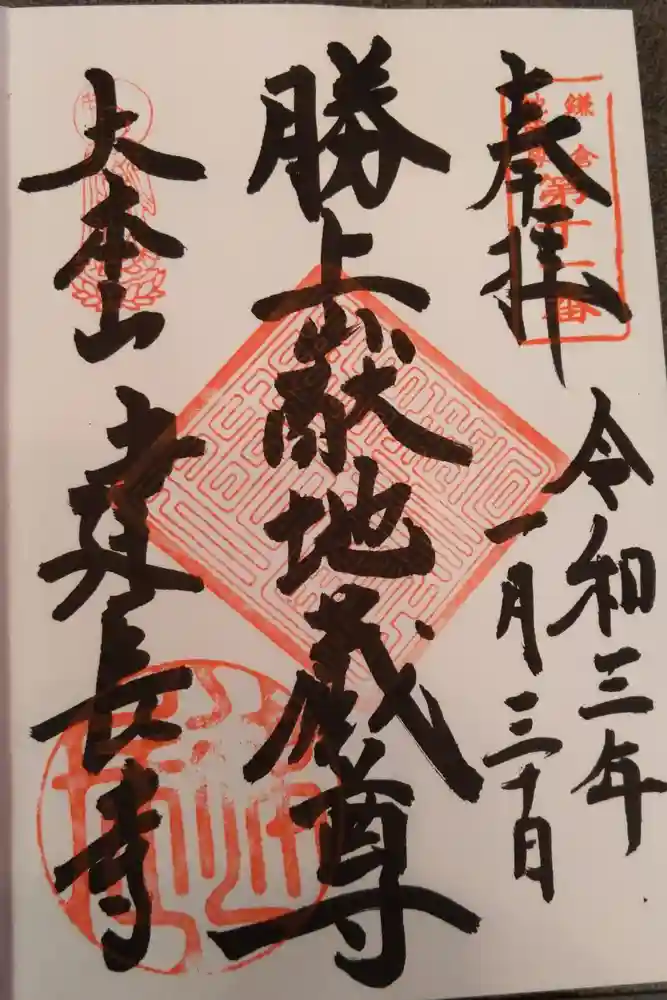 鎌倉
地蔵尊
第十一番
奉拝
令和三年
一月三十日
勝上献地蔵尊
大本山
建長寺